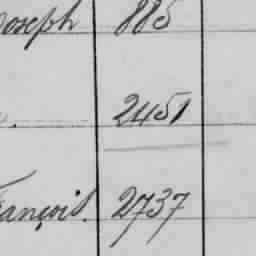 Joseph 885
2451
François. 2737